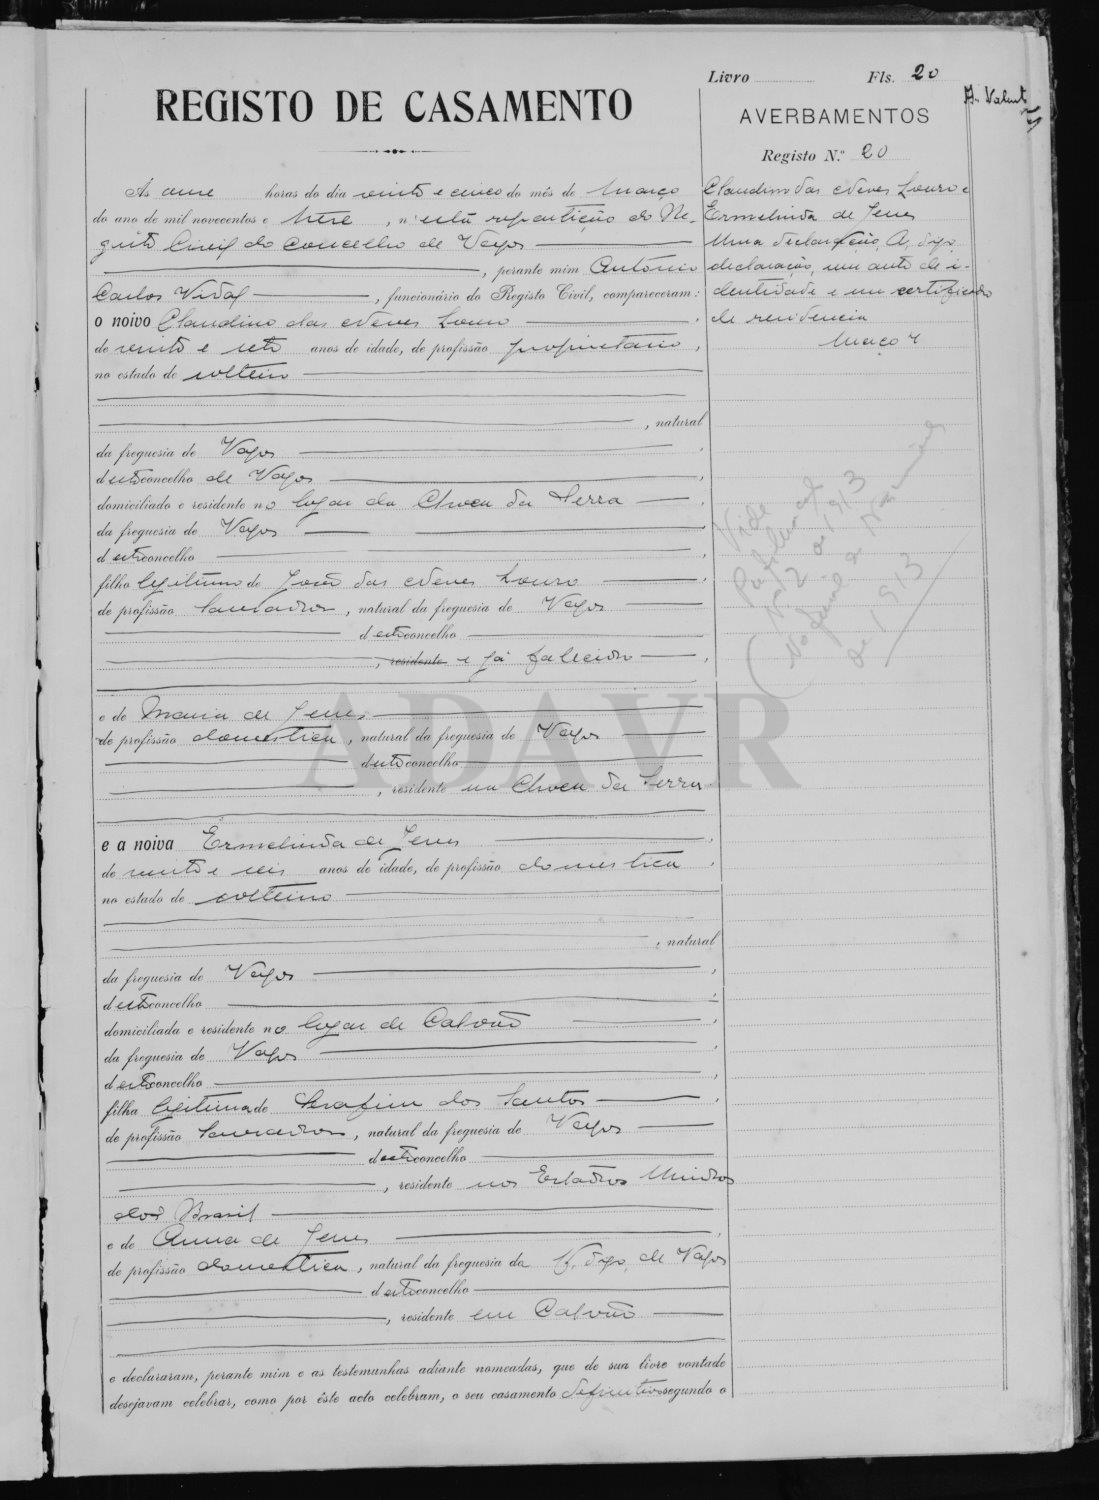 Livro Fls. 20
REGISTO DE CASAMENTO
AVERBAMENTOS
Registo N.º 20
Às onze horas do dia vinte e cinco do mês de Março
do ano de mil novecentos e treze, n'esta repartição do Re-
gisto Civil do concelho de Vagos
, perante mim António
Carlos Vidal, funcionário do Registo Civil, compareceram:
o noivo Claudino das Neves Louro
de vinte e sete anos de idade, de profissão proprietario,
no estado de solteiro
, natural
da freguesia de Vagos,
d este concelho de Vagos
domiciliado e residente no logar da Choca da Serra
da freguesia de Vagos
d este concelho,
filho legitimo de João das Neves Louro,
de profissão lavrador, natural da freguesia de Vagos
d este concelho
, residente e já falecido,
e de Maria de Jesus
de profissão domestica, natural da freguesia de Vagos
d este concelho
, residente na Choca da Serra
e a noiva Ermelinda de Jesus,
de vinte e seis anos de idade, de profissão domestica,
no estado de solteiro
, natural
da freguesia de Vagos,
d este concelho,
domiciliada e residente no logar de Calvão,
da freguesia de Vagos,
d este concelho,
filha legitima de Serafim dos Santos,
de profissão lavrador, natural da freguesia de Vagos
d este concelho
, residente nos Estados Unidos
dos Brasil
e de Anna de Jesus,
de profissão domestica, natural da freguesia da V, digo, de Vagos
d este concelho
, residente em Calvão
e declararam, perante mim e as testemunhas adiante nomeadas, que de sua livre vontade
desejavam celebrar, como por êste acto celebram, o seu casamento definitivo segundo o
Claudino das Neves Louro e
Ermelinda de Jesus
Uma declaração, A, digo,
declaração, um auto de i-
dentidade e um certificado
de residencia
Março
Vide
Nº 2 de 1913
de 1913
ADAVR